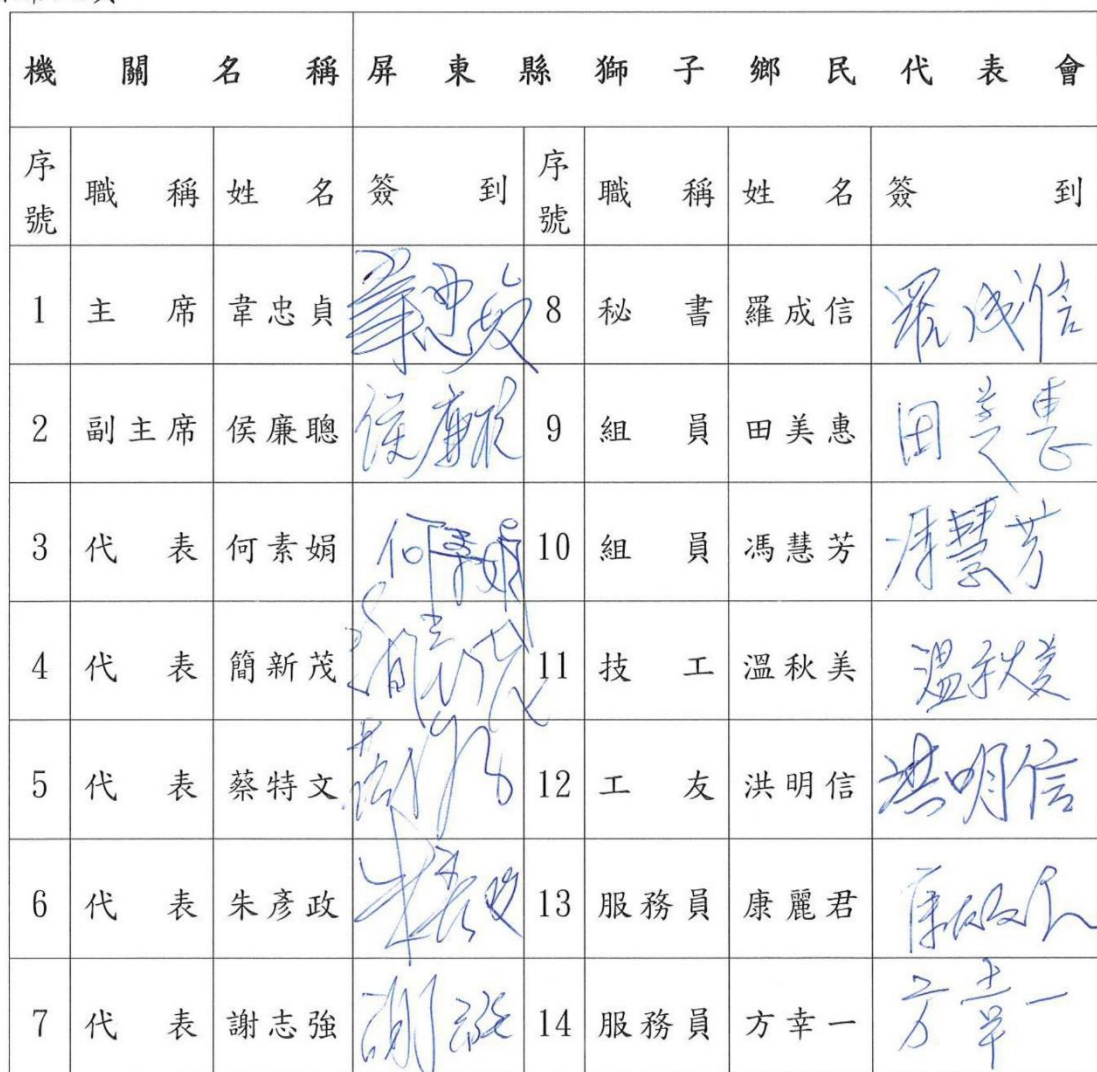 機關名稱 屏東縣獅子鄉民代表會
序號 職稱 姓名 簽到 序號 職稱 姓名 簽到
1 主席 韋忠貞 8 秘書 羅成信 羅成信
2 副主席 侯廉聰 侯廉聰 9 組員 田美惠 田美惠
3 代表 何素娟 何素娟 10 組員 馮慧芳 馮慧芳
4 代表 簡新茂 簡新茂 11 技工 溫秋美 溫秋美
5 代表 蔡特文 12 工友 洪明信 洪明信
6 代表 朱彥政 朱彥政 13 服務員 康麗君 康麗君
7 代表 謝志強 14 服務員 方幸一 方幸一